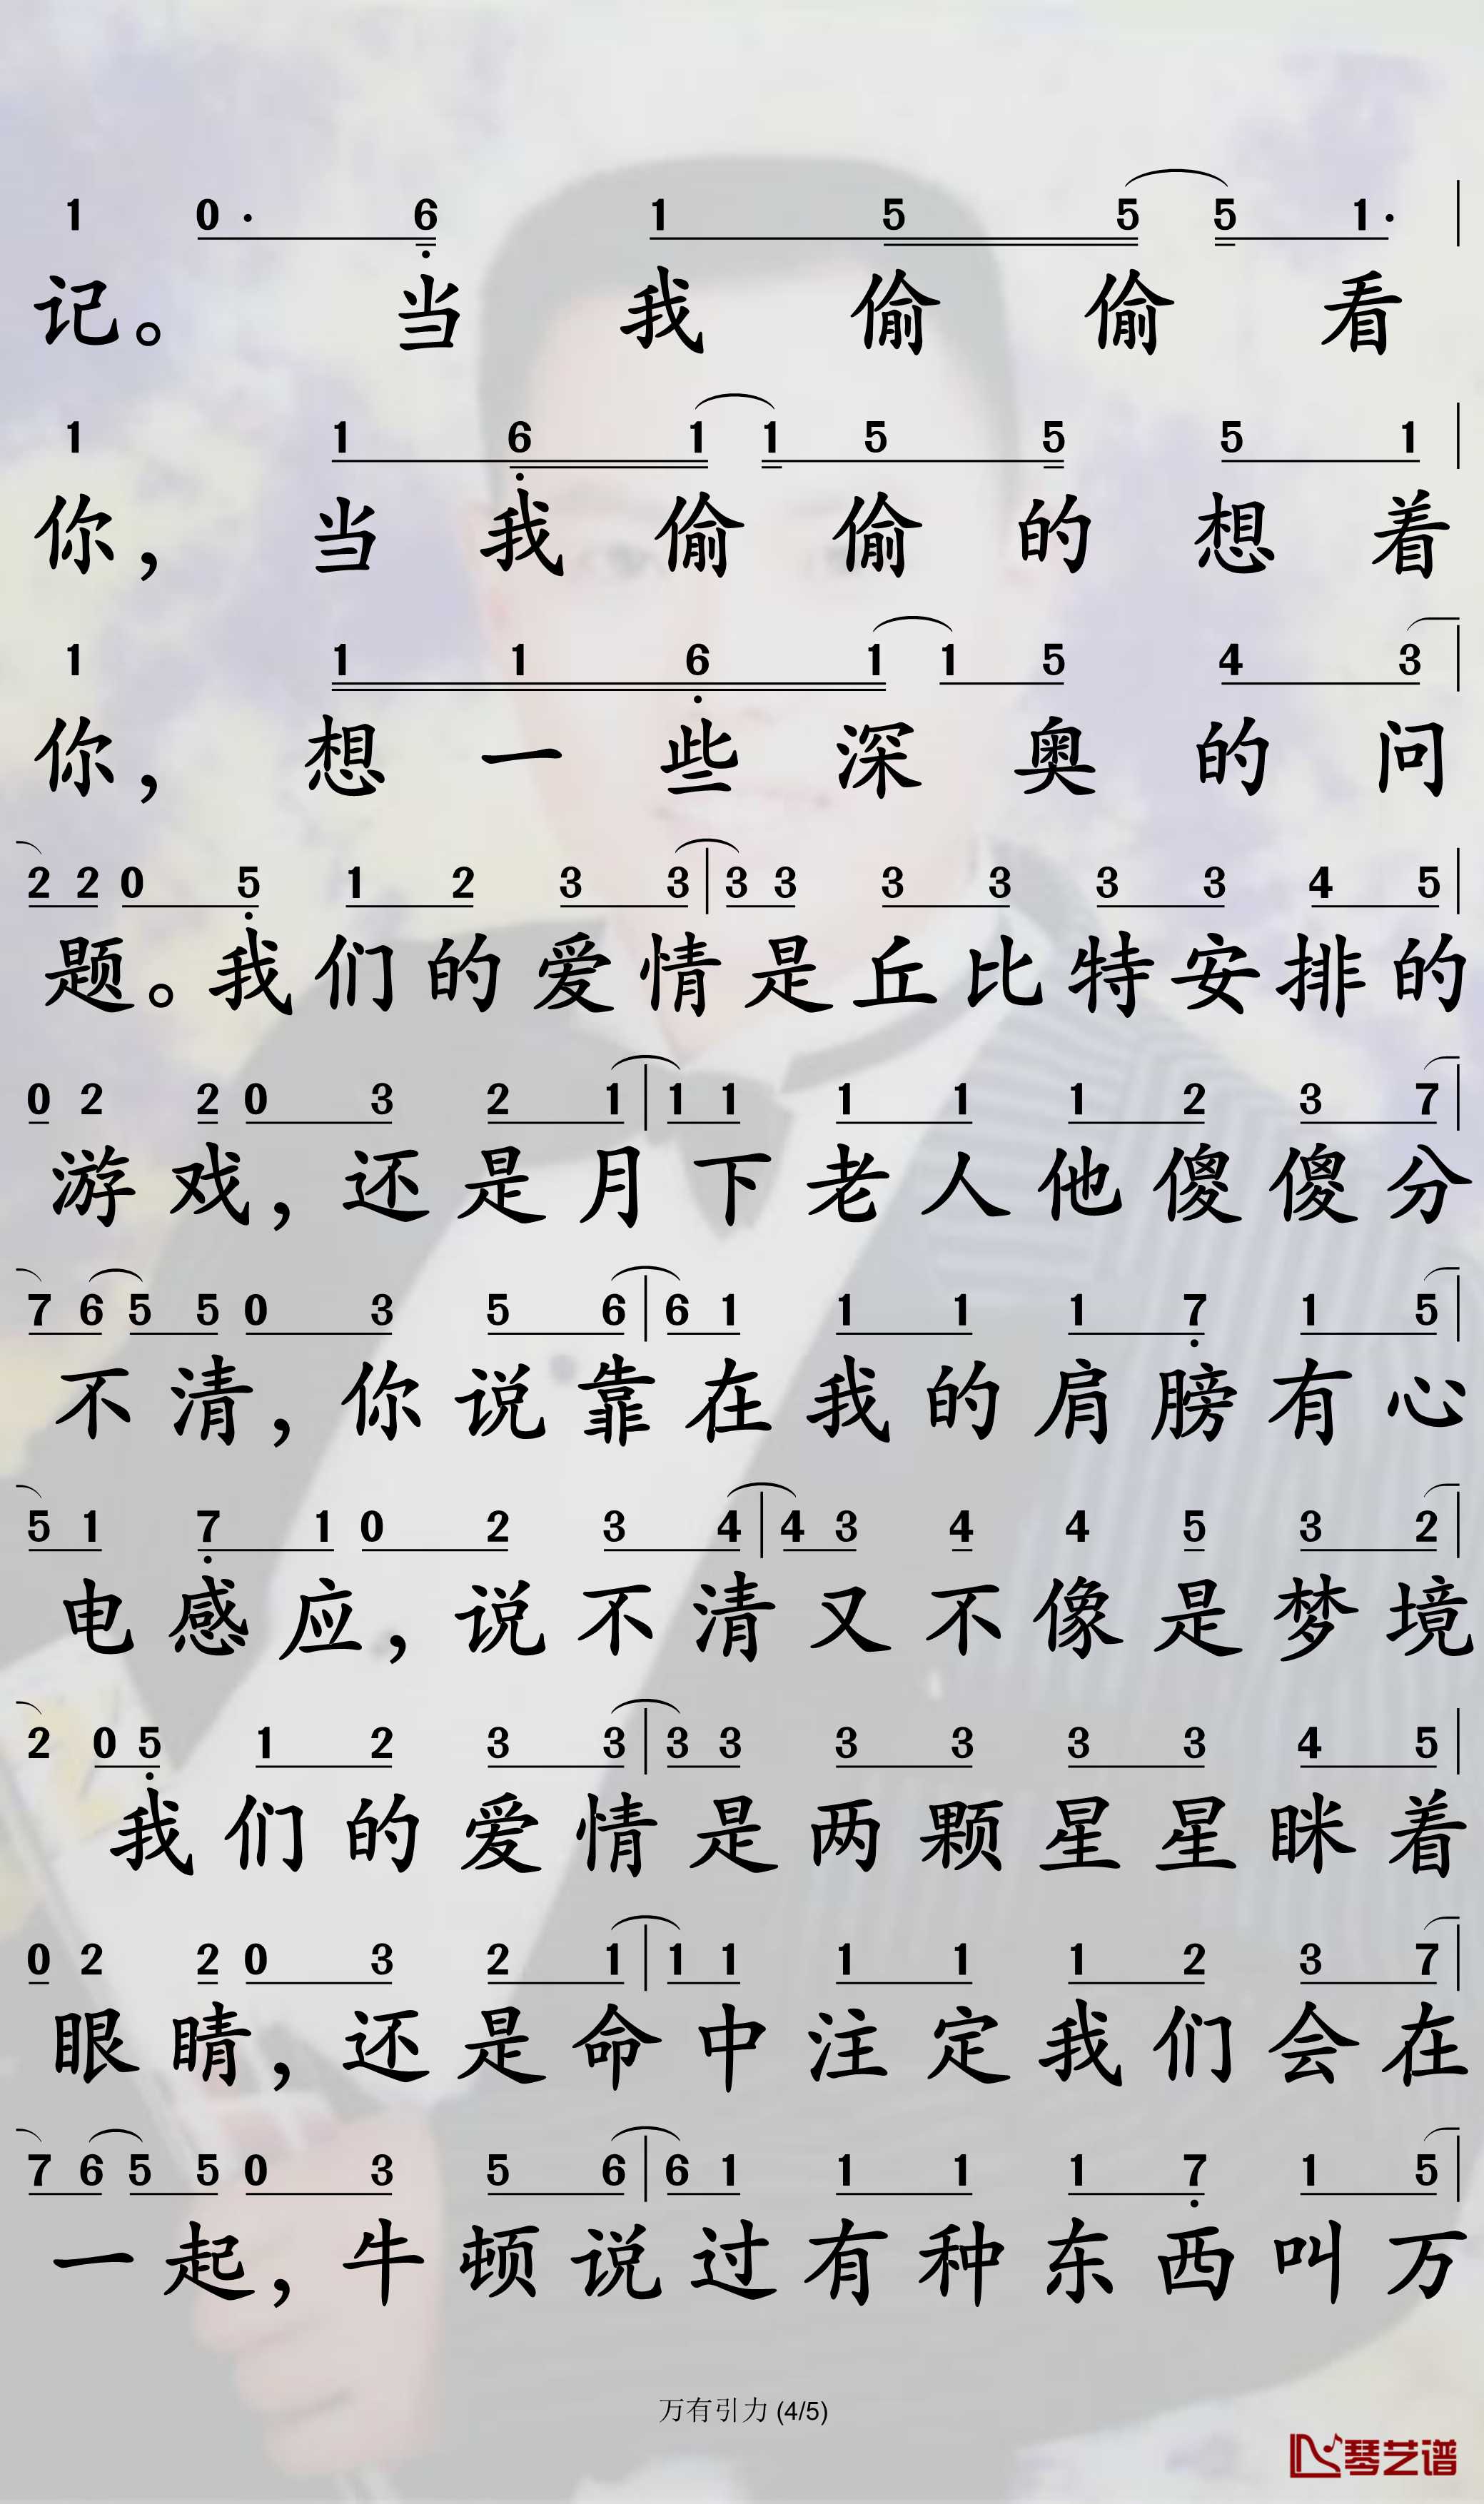 1 0· 6 1 5 5 5 1·
记。 当 我 偷 偷 看
1 1 6 1 1 5 5 5 1
你， 当 我 偷 偷 的 想 着
1 1 1 6 1 1 5 4 3
你， 想 一 些 深 奥 的 问
2 2 0 5 1 2 3 3 | 3 3 3 3 3 3 4 5
题。我 们 的 爱 情 是 丘 比 特 安 排 的
0 2 2 0 3 2 1 | 1 1 1 1 1 2 3 7
游 戏， 还 是 月 下 老 人 他 傻 傻 分
7 6 5 5 0 3 5 6 | 6 1 1 1 1 7 1 5
不 清， 你 说 靠 在 我 的 肩 膀 有 心
5 1 7 1 0 2 3 4 | 4 3 4 4 5 3 2
电 感 应， 说 不 清 又 不 像 是 梦 境
2 0 5 1 2 3 3 | 3 3 3 3 3 3 4 5
我 们 的 爱 情 是 两 颗 星 星 眯 着
0 2 2 0 3 2 1 | 1 1 1 1 1 2 3 7
眼 睛， 还 是 命 中 注 定 我 们 会 在
7 6 5 5 0 3 5 6 | 6 1 1 1 1 7 1 5
一 起， 牛 顿 说 过 有 种 东 西 叫 万
万有引力 (4/5)
琴艺谱